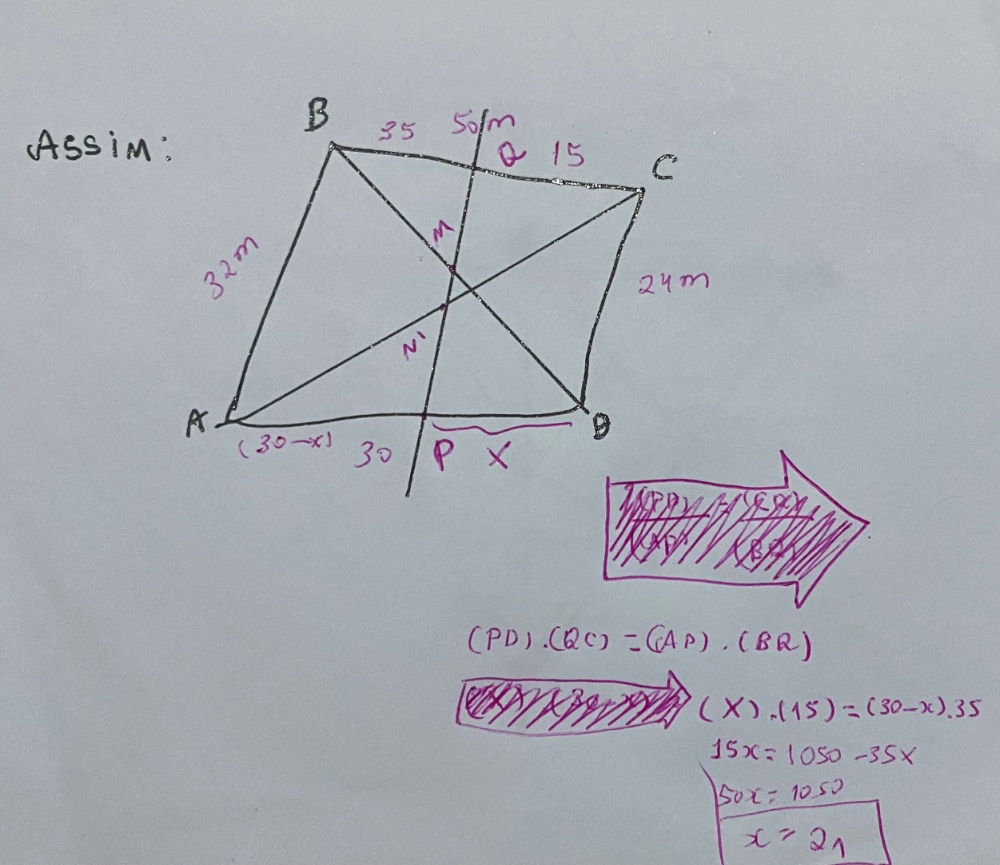 B
35 50m
Assim:
Q 15
C
M
32m
24m
N
A
D
(30-x) 30 P X
(PD).(QC)=(AP).(BQ)
(X).(15)=(30-x).35
15x=1050-35x
50x=1050
x=21